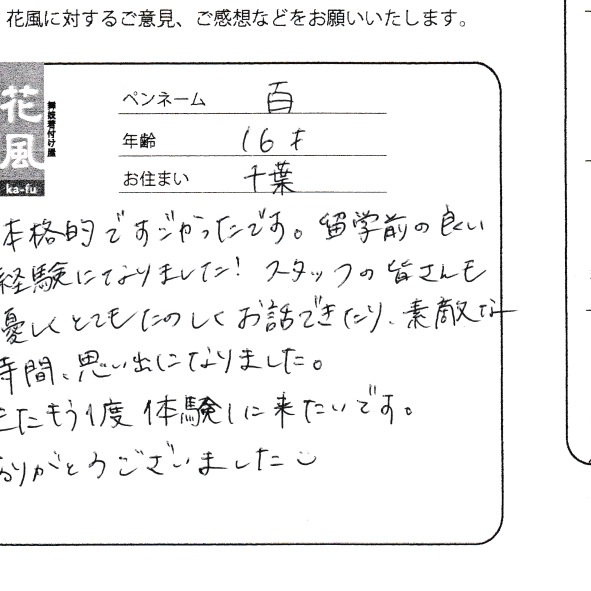 花風に対するご意見、ご感想などをお願いいたします。
花風
舞妓着付け屋
ka-fu
ペンネーム 百
年齢 16才
お住まい 千葉
本格的ですごかったです。留学前の良い
経験になりました! スタッフの皆さんも
優しくとてもたのしくお話できたり、素敵な
時間、思い出になりました。
またもう1度体験しに来たいです。
ありがとうございました